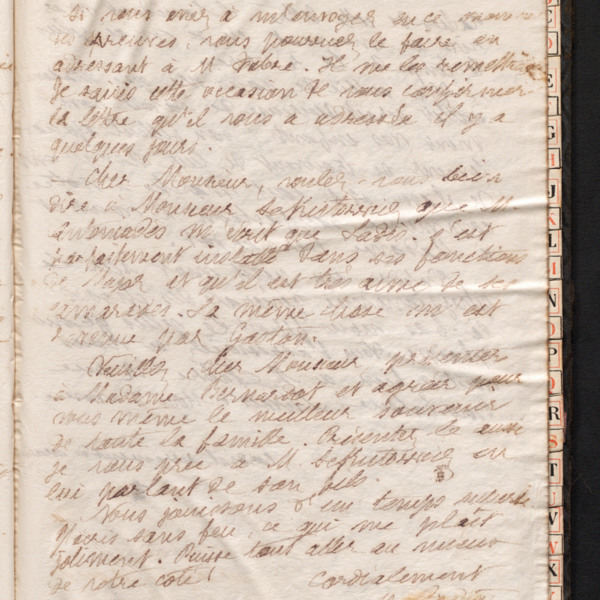 Si vous avez à m'envoyer en ce moment
des épreuves, vous pourriez le faire en
adressant à M. Fabre. Il me les remettra
Je saisis cette occasion de vous confirmer
la lettre qu'il vous a adressée il y a
quelques jours.
Cher Monsieur, voulez-vous bien
dire à Monsieur que M.
m'écrit que s'est
parfaitement installé dans ses fonctions
de Major et qu'il est très aimé de ses
camarades. La même chose m'est
par Gaston.
Veuillez, cher Monsieur présenter
à Madame Bernardot et agréer pour
vous même le meilleur souvenir
de toute la famille. Présentez le aussi
je vous prie à M. en
lui parlant de son fils.
Nous jouissons d'un temps
sans feu, ce qui me plaît
joliment. Puisse tout aller au mieux
de votre coté!
Cordialement
C
D
E
G
H
J
K
L
M
N
O
P
Q
R
S
T
U
V
W
X
Y